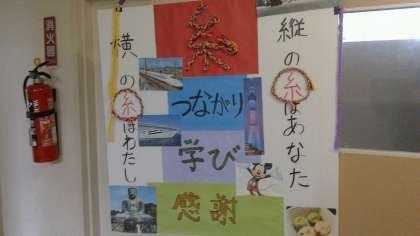 縦の糸はあなた
糸
つながり
学び
感謝
横の糸はわたし
消火器